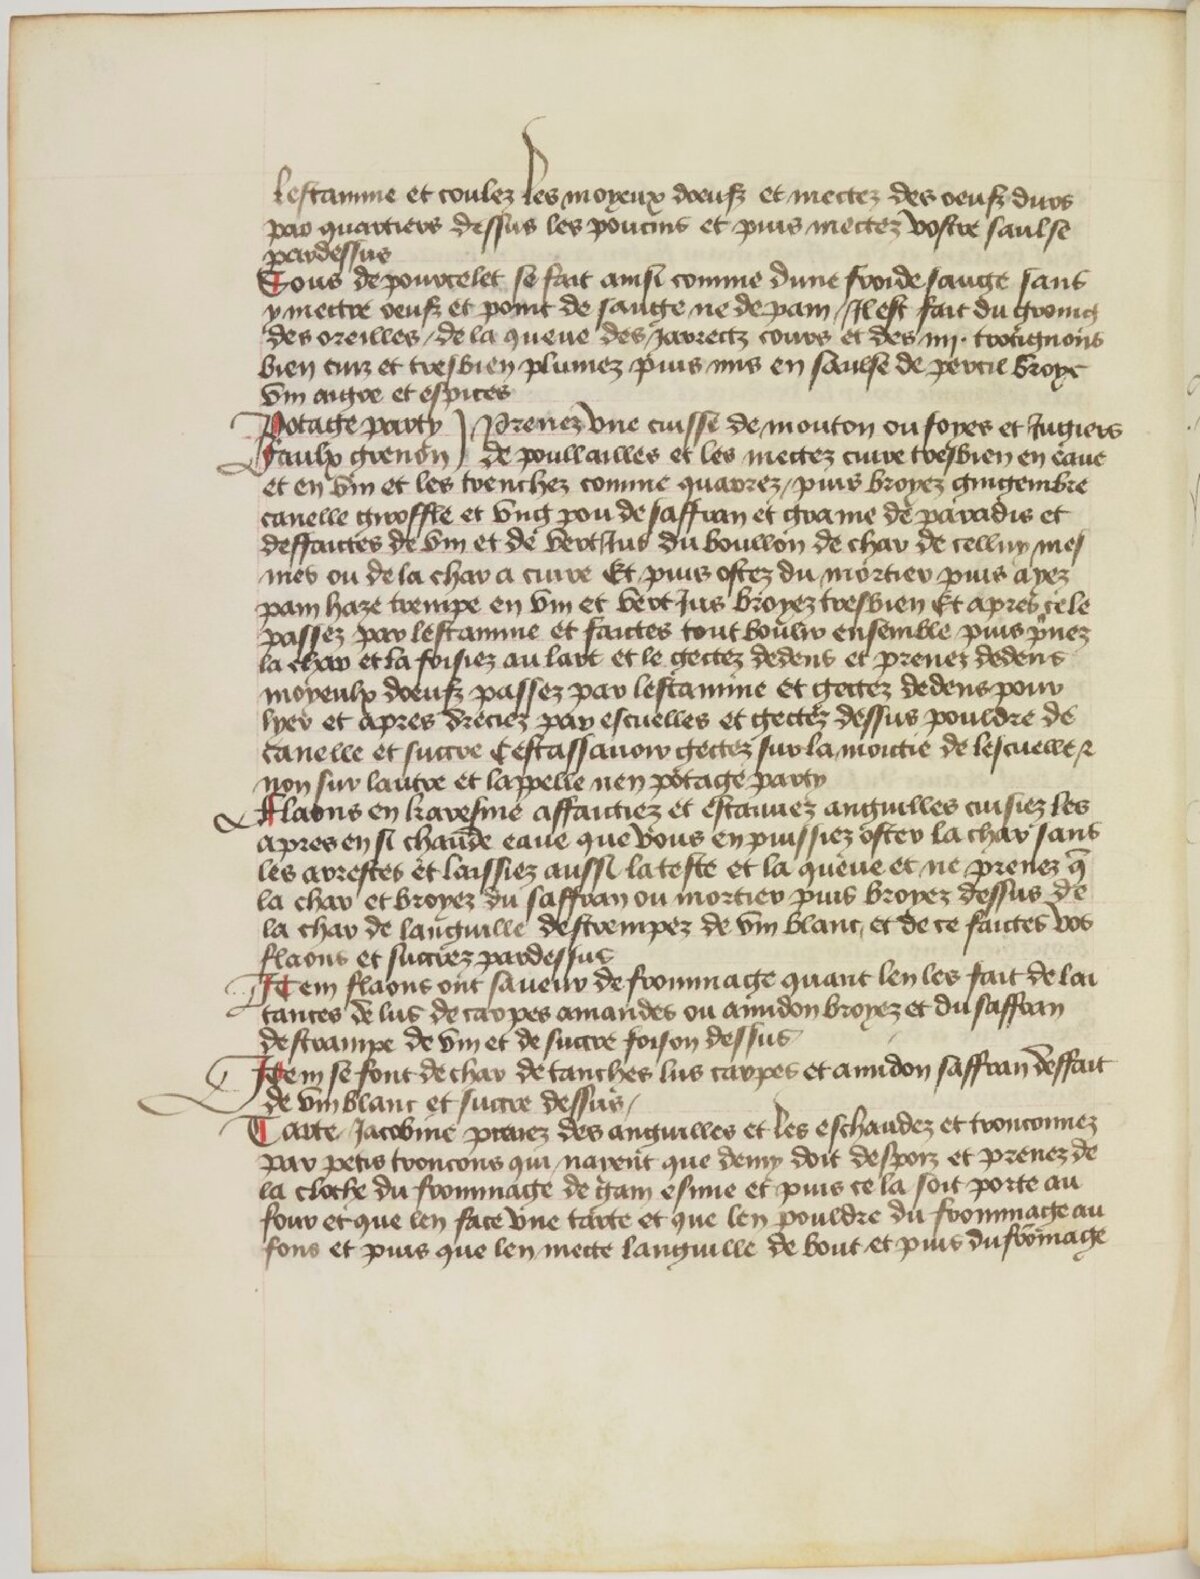 lestamine et coulez les moyeux doeufz et mectez des oeufz durs
par quartiers dessus les poucins et puis mectez vostre saulse
pardessus
Sous de pourcelet se fait ainsi comme dune froide sauge sans
y mectre oeufz et point de sauge ne de pain / Il est fait du groing
des oreilles / de la queue des Jarrectz cours et des iiij. trotignons
bien cuiz et tresbien plumez puis mis en saulse de percil broye
vin aigre et espices
Potage party ) Prenez vne cuisse de mouton ou foyes et Jugiers
Faulx grenon ) de poullailles et les mectez cuire tresbien en eaue
et en vin et les trenchez comme quarrez / puis broyez gingembre
canelle giroffle et vng pou de saffran et graine de paradis et
deffaictes de vin et de vertJus du boullon de char de celluy mes
mes ou de la char a cuire Et puis ostez du mortier puis ayez
pain haze trempe en vin et vertJus broyez tresbien Et apres ce le
passez par lestamine et faictes tout boulir ensemble puis p̃nez
la char et la foisiez au lart et le gectez dedens et prenez dedens
moyeulx doeufz passez par lestamine et gectez dedens pour
lyer et apres dreciez par escuelles et gectez dessus pouldre de
canelle et succre Cestassauoir gectez sur la moictie de lescuelle ⁊
non sur lautre et lappelle nen potage party
Flaons en karesme affaictiez et estauuez anguilles cuisiez les
apres en si chaude eaue que vous en puissiez oster la char sans
les arrestes et laissiez aussi la teste et la queue et ne prenez q̃
la char et broyez du saffran ou mortier puis broyez dessus de
la char de languille destrempez de vin blanc, et de ce faictes vos
flaons et succrez pardessus
Item flaons ont saueur de frommage quant len les fait de lai
tances de lus de carpes amandes ou amidon broyez et du saffran
destrampe de vin et de succre foison dessus
Item se font de char de tanches lus carpes et amidon saffran deffait
de vin blanc et succre dessus /
Tarte Jacobine prenez des anguilles et les eschaudez et tronconnez
par petis troncons qui naient que demy doit despoiz et prenez de
la cloche du frommage de gain esmie et puis ce la soit porte au
four et que len face vne tarte et que len pouldre du frommage au
fons et puis que len mecte languille de bout et puis du frõmage